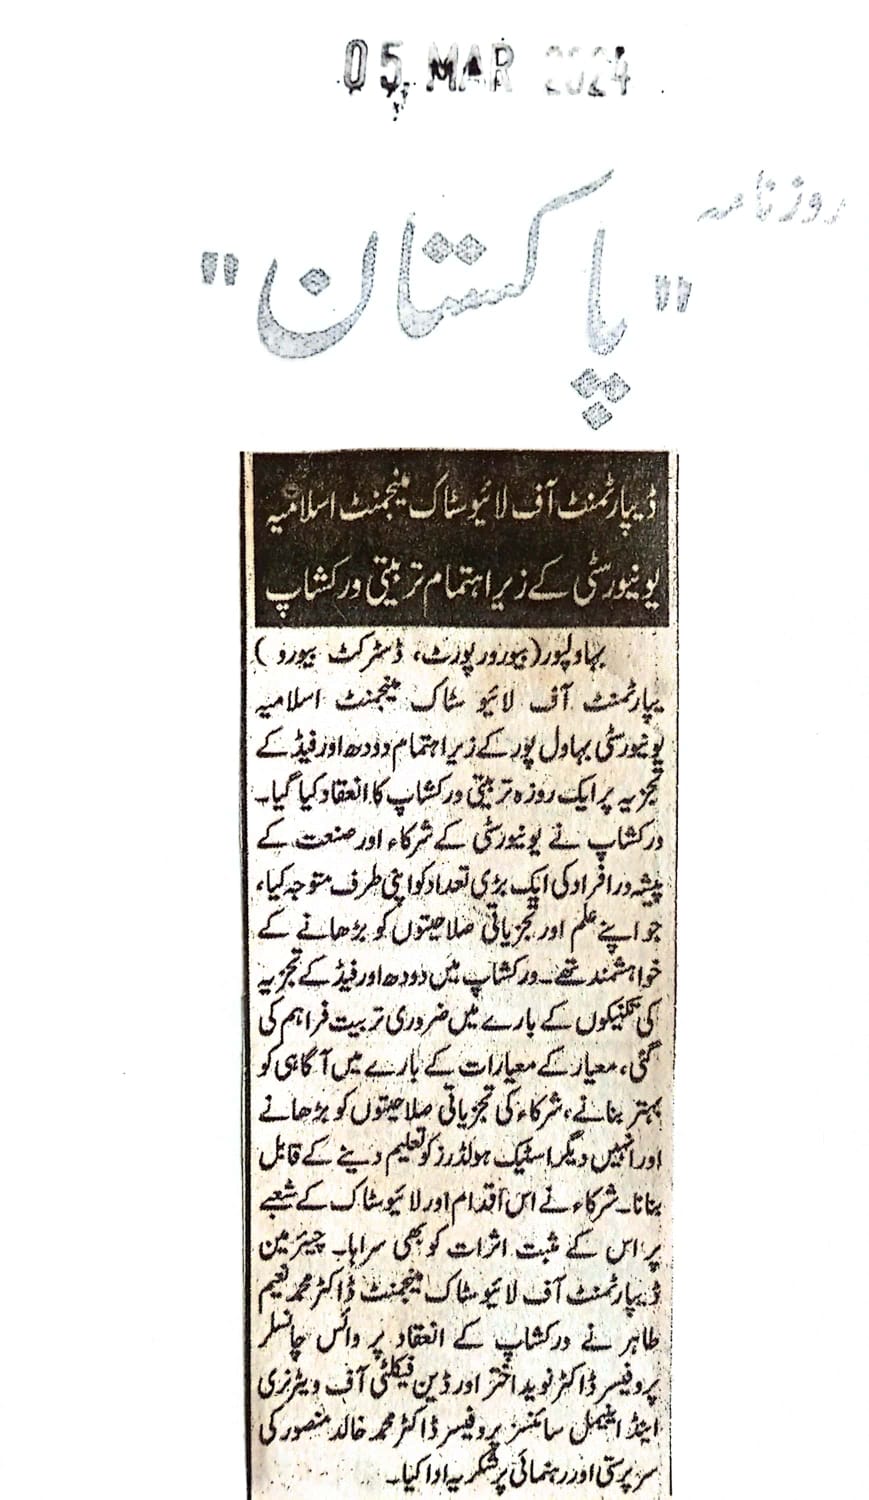 05 MAR 2024
روزنامہ
"پاکستان"
ڈیپارٹمنٹ آف لائیو سٹاک مینجمنٹ اسلامیہ
یونیورسٹی کے زیر اہتمام تربیتی ورکشاپ
بہاولپور (بیورو رپورٹ، ڈسٹرکٹ بیورو)
یپارٹمنٹ آف لائیو سٹاک مینجمنٹ اسلامیہ
یونیورسٹی بہاول پور کے زیر اہتمام دودھ اور فیڈ کے
تجزیہ پر ایک روزہ تربیتی ورکشاپ کا انعقاد کیا گیا۔
ورکشاپ نے یونیورسٹی کے شرکاء اور صنعت کے
پیشہ ور افراد کی ایک بڑی تعداد کو اپنی طرف متوجہ کیا،
جو اپنے علم اور تجزیاتی صلاحیتوں کو بڑھانے کے
خواہشمند تھے۔ ورکشاپ میں دودھ اور فیڈ کے تجزیہ
کی تکنیکوں کے بارے میں ضروری تربیت فراہم کی
گئی، معیار کے معیارات کے بارے میں آگاہی کو
بہتر بنانے، شرکاء کی تجزیاتی صلاحیتوں کو بڑھانے
اور انہیں دیگر اسٹیک ہولڈرز کو تعلیم دینے کے قابل
بنانا۔ شرکاء نے اس اقدام اور لائیو سٹاک کے شعبے
پر اس کے مثبت اثرات کو بھی سراہا۔ چیئرمین
ڈیپارٹمنٹ آف لائیو سٹاک مینجمنٹ ڈاکٹر محمد نعیم
طاہر نے ورکشاپ کے انعقاد پر وائس چانسلر
پروفیسر ڈاکٹر نوید اختر اور ڈین فیکلٹی آف ویٹرنری
اینڈ اینیمل سائنسز پروفیسر ڈاکٹر محمد خالد منصور کی
سرپرستی اور رہنمائی پر شکریہ ادا کیا۔